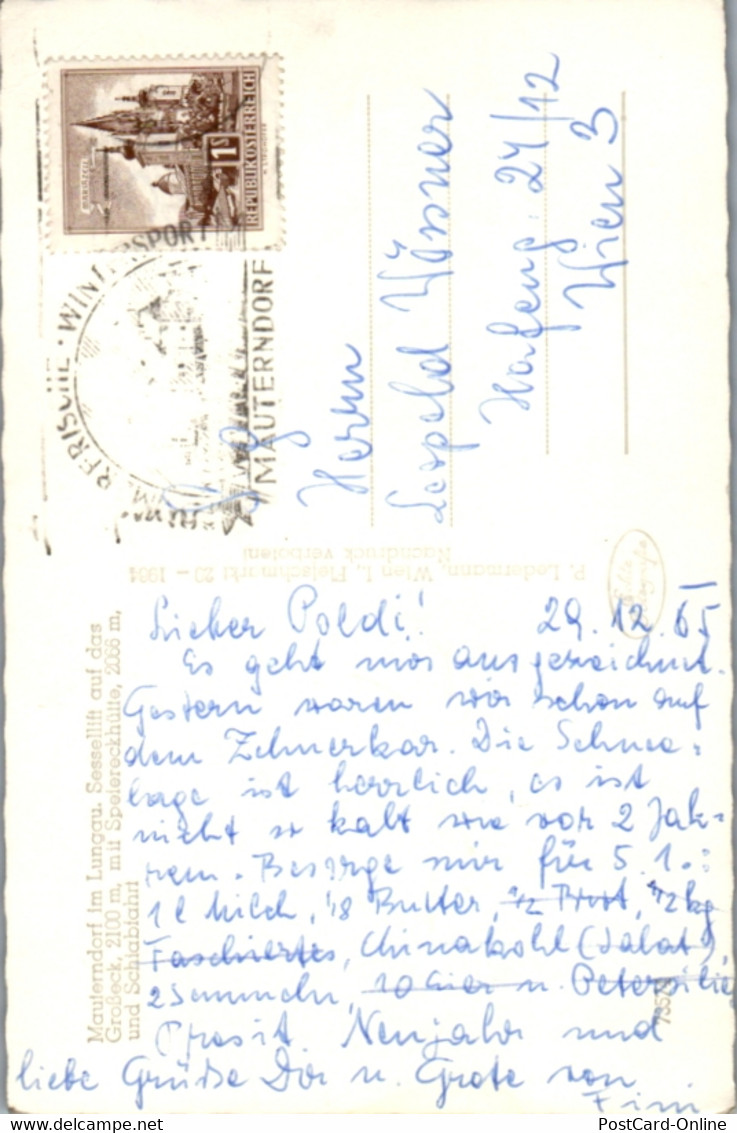 MARIAZELL
1S
REPUBLIK ÖSTERREICH
SOMMERFRISCHE · WINTERSPORT
MAUTERNDORF
Herrn
Leopold Wösner
Hafeng. 24/12
Wien 3
P. Ledermann, Wien I., Fleischmarkt 20 – 1964
Nachdruck verboten!
Mauterndorf im Lungau. Sessellift auf das
Großeck, 2100 m, mit Speiereckhütte, 2066 m,
und Schiabfahrt
Lieber Poldi! 29.12.65
Es geht mir ausgezeichnet.
Gestern waren wir schon auf
dem Zehnerkar. Die Schnee-
lage ist herrlich, es ist
nicht so kalt wie vor 2 Jah-
ren. Besorge mir für 5.1.:
1 l Milch, 1/8 Butter, 1/2 Brot, 1/2 kg
Faschiertes, Chinakohl (Salat),
2 Semmeln, 10 Eier u. Petersilie
Prosit Neujahr und
liebe Grüße Dir u. Grete von
Fini
PostCard-Online PostCard-Online